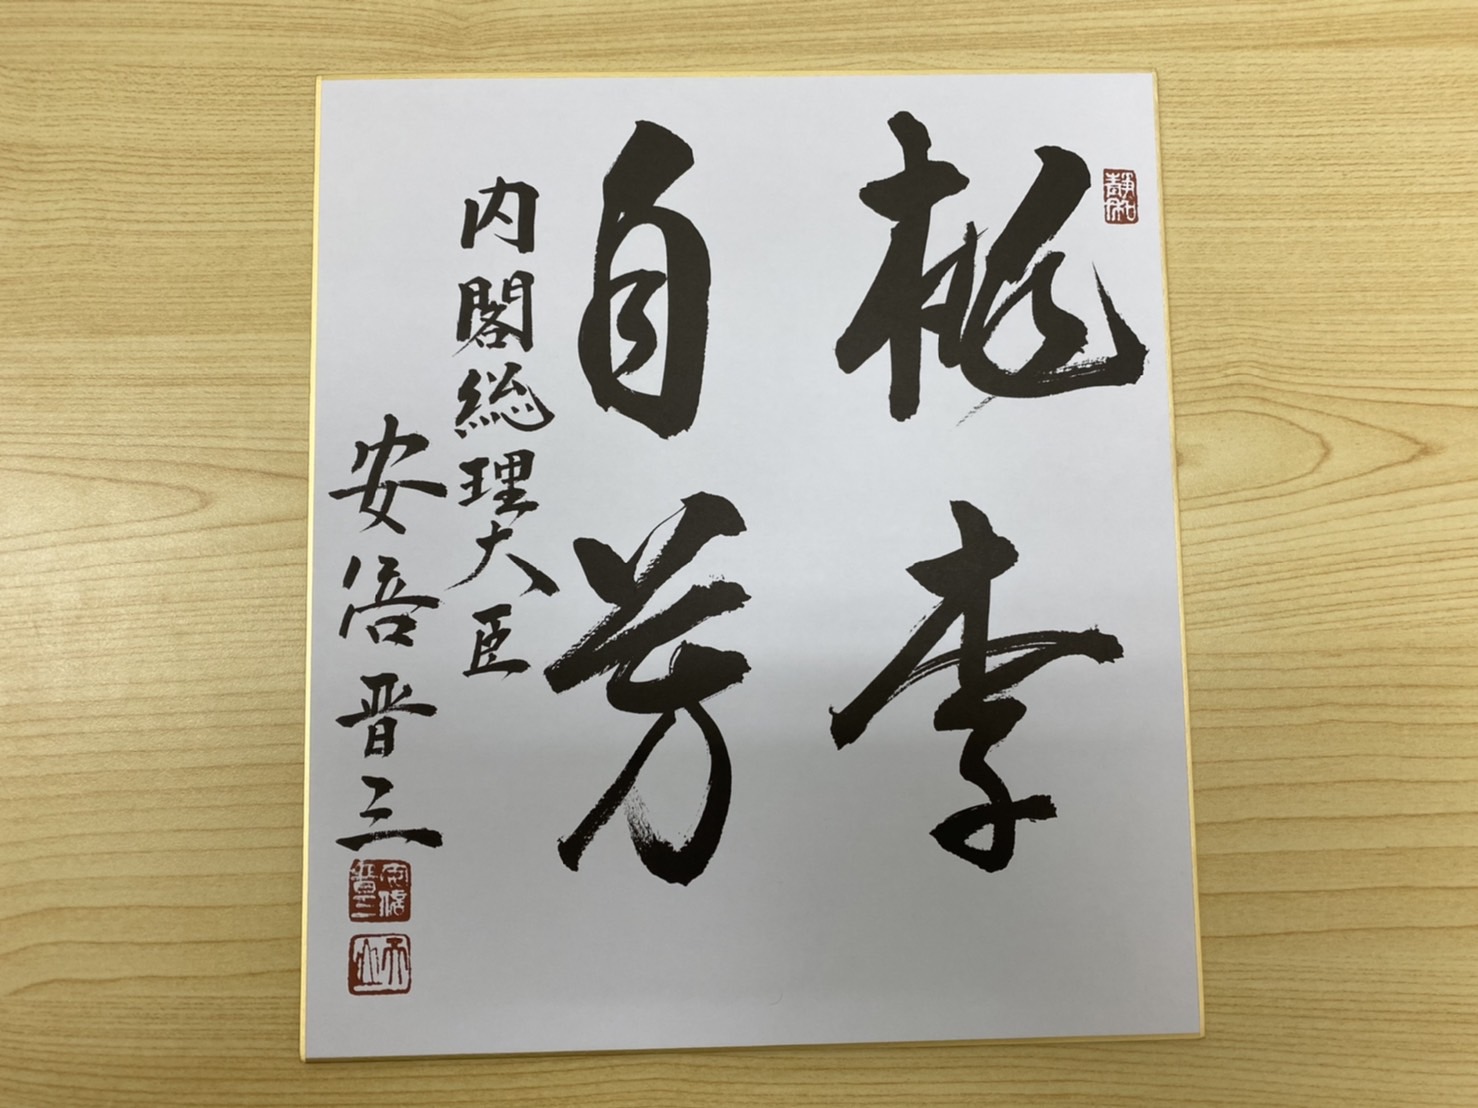 桃李
自芳
内閣総理大臣
安倍晋三
靜和
安倍晋三